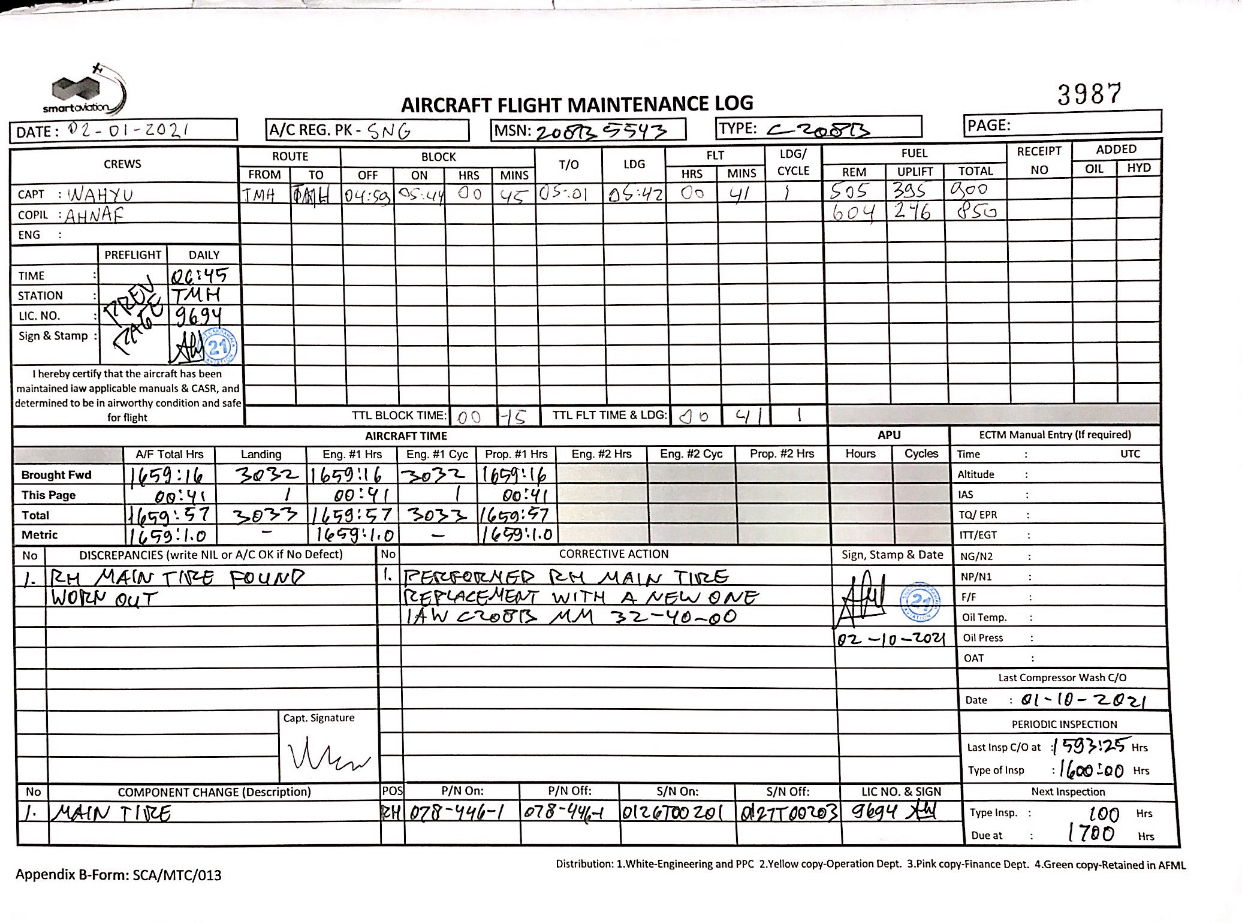 smartaviation
AIRCRAFT FLIGHT MAINTENANCE LOG
3987
DATE: 02-01-2021 A/C REG. PK - SNG MSN: 208B 5543 TYPE: C208B PAGE:
CREWS ROUTE BLOCK T/O LDG FLT LDG/ CYCLE FUEL RECEIPT NO ADDED
FROM TO OFF ON HRS MINS HRS MINS REM UPLIFT TOTAL OIL HYD
CAPT : WAHYU TMH TMH 04:59 05:44 00 45 05:01 05:42 00 41 1 505 395 900
COPIL : AHNAF 604 246 850
ENG :
PREFLIGHT DAILY
TIME : 06:45
STATION : TMH
LIC. NO. : 9694
PREV PAGE
Sign & Stamp : 21
I hereby certify that the aircraft has been
maintained iaw applicable manuals & CASR, and
determined to be in airworthy condition and safe
for flight
TTL BLOCK TIME: 00 45 TTL FLT TIME & LDG: 00 41 1
AIRCRAFT TIME APU ECTM Manual Entry (If required)
A/F Total Hrs Landing Eng. #1 Hrs Eng. #1 Cyc Prop. #1 Hrs Eng. #2 Hrs Eng. #2 Cyc Prop. #2 Hrs Hours Cycles Time : UTC
Brought Fwd 1659:16 3032 1659:16 3032 1659:16 Altitude :
This Page 00:41 1 00:41 1 00:41 IAS :
Total 1659:57 3033 1659:57 3033 1659:57 TQ/ EPR :
Metric 1659:1.0 - 1659:1.0 - 1659:1.0 ITT/EGT :
No DISCREPANCIES (write NIL or A/C OK if No Defect) No CORRECTIVE ACTION Sign, Stamp & Date NG/N2 :
1. RH MAIN TIRE FOUND 1. PERFORMED RH MAIN TIRE NP/N1 :
WORN OUT REPLACEMENT WITH A NEW ONE 21 F/F :
IAW C208B MM 32-40-00 Oil Temp. :
02-10-2021 Oil Press :
OAT :
Last Compressor Wash C/O
Date : 01-10-2021
Capt. Signature
PERIODIC INSPECTION
Last Insp C/O at : 1593:25 Hrs
Type of Insp : 1600:00 Hrs
No COMPONENT CHANGE (Description) POS P/N On: P/N Off: S/N On: S/N Off: LIC NO. & SIGN Next Inspection
1. MAIN TIRE RH 078-446-1 078-446-1 0126T00201 0127T00203 9694 Type Insp. : 100 Hrs
Due at : 1700 Hrs
Distribution: 1.White-Engineering and PPC 2.Yellow copy-Operation Dept. 3.Pink copy-Finance Dept. 4.Green copy-Retained in AFML
Appendix B-Form: SCA/MTC/013